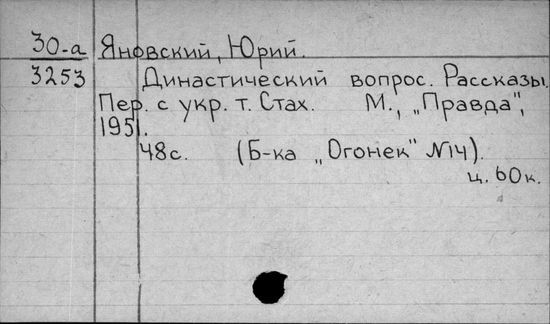 30-а Яновский, Юрий.
3253 Династический вопрос. Рассказы.
Пер. с укр. т. Стах. М., „Правда",
1951.
48с. (Б-ка „Огонек" N14).
ц. 60к.